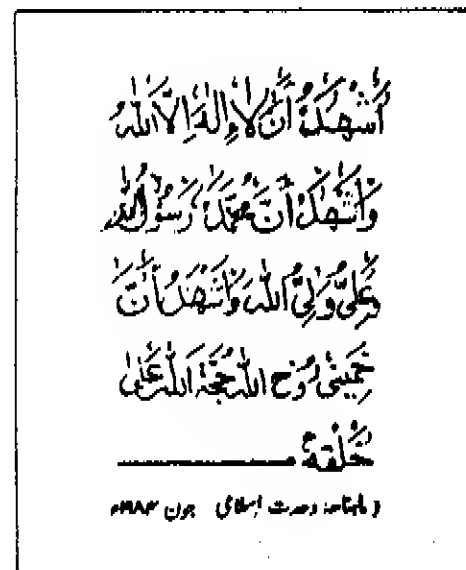 أَشْهَدُ أَنْ لَاإِلٰهَ اِلَّا اللّٰهُ
وَاَشْهَدُ أَنَّ مُحَمَّدَ رَسُوْلُ اللّٰهِ
وَعَلِيٌّ وَلِيُّ اللّٰهِ وَاَشْهَدُ أَنَّ
خَمِيْنِيْ رُوْحُ اللّٰهِ حُجَّةُ اللّٰهِ عَلٰى
خَلْقِهٖ
(ماہنامہ وحدت اسلامی جون ۱۹۸۴ء